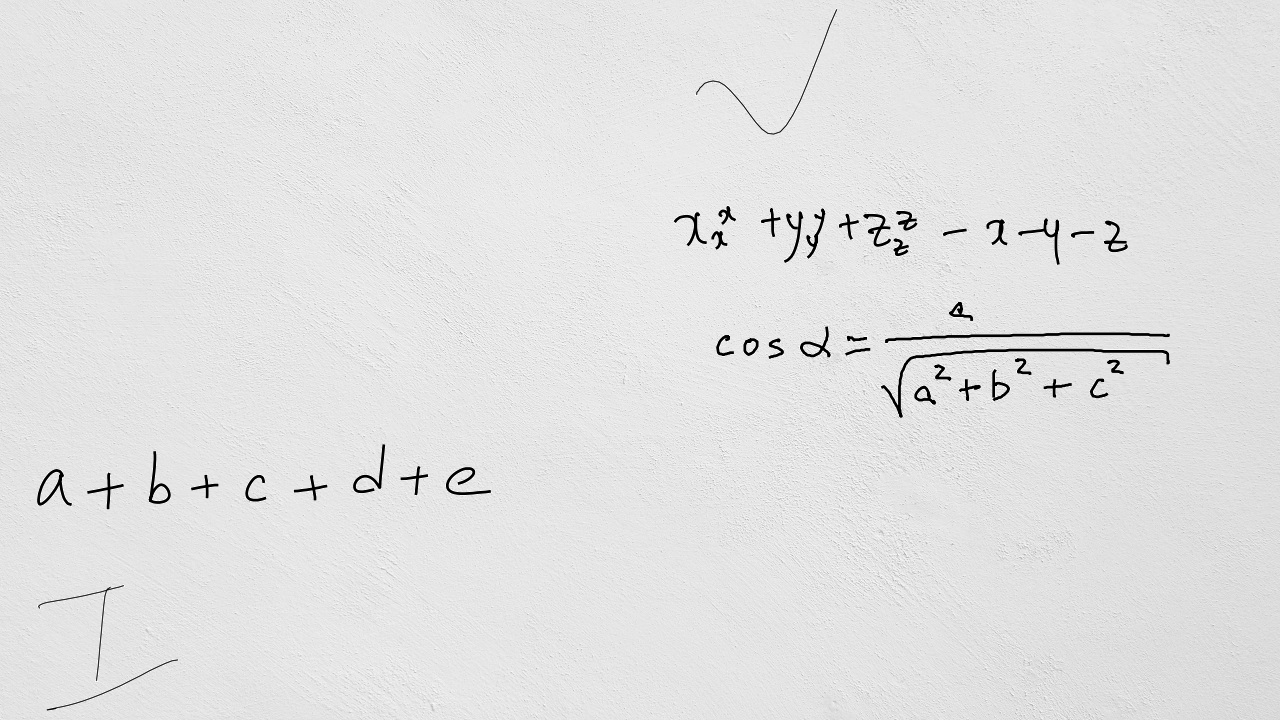 √
$x_x^x + y_y^y + z_z^z - x - y - z$
$\cos \alpha = \frac{a}{\sqrt{a^2 + b^2 + c^2}}$
$a + b + c + d + e$
I